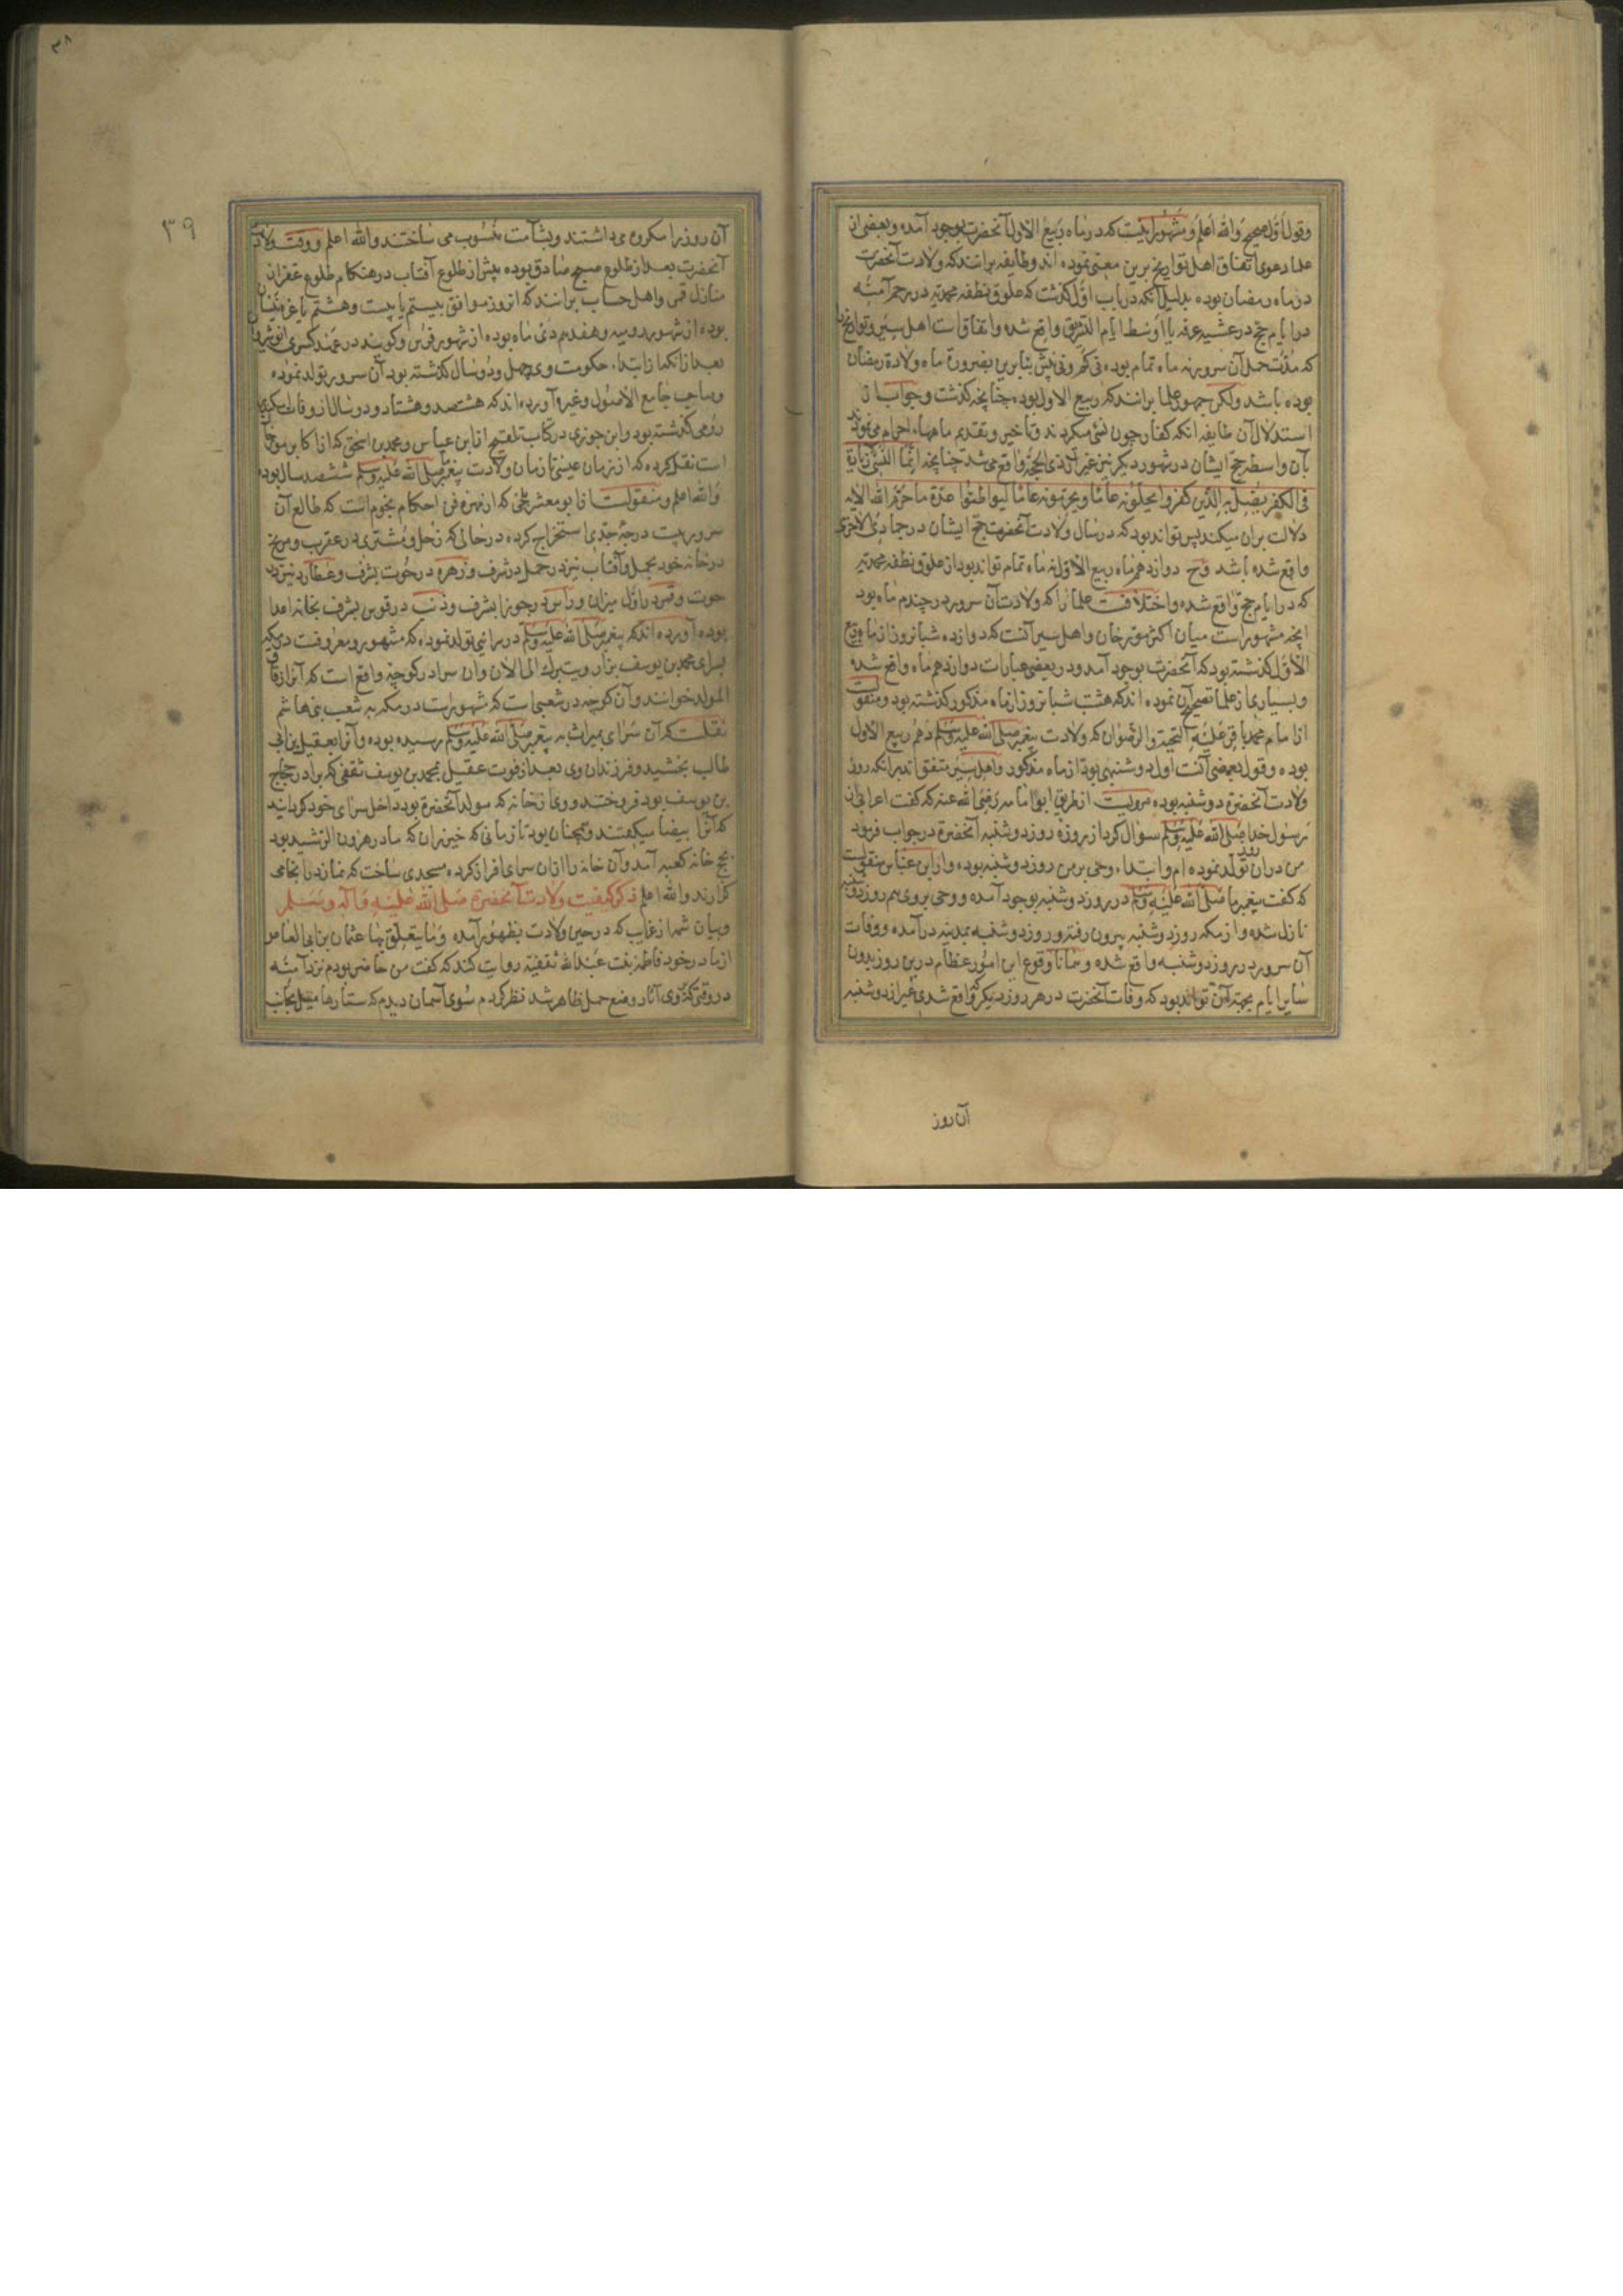 وقول اول صحیح والله اعلم ومشهور انست که در ماه ربیع الاول آنحضرت بوجود آمده وبعضی از
علما دعوی اتفاق اهل تواریخ برین معنی نموده اند وطایفه برانند که ولادت آنحضرت
در ماه رمضان بوده بدلیل آنکه در باب اول گذشت که علوق نطفه محمدیه در رحم آمنه
در ایام حج در عشیه عرفه یا اوسط ایام التشریق واقع شده واتفاق است اهل سیر وتواریخ را
که مدت حمل آن سرور نه ماه تمام بوده نی کم ونی بیش بنابرین بضرورة ماه ولادة رمضان
بوده باشد ولکن جمهور علما برانند که ربیع الاول بوده چنانچه گذشت وجواب از
استدلال آن طایفه انکه کفار چون نسئ میکردند وتاخیر وتقدیم ماهها احرام می نمودند
بآن واسطه حج ایشان در شهور دیکر نیز غیر از ذی الحجه واقع می شد چنانچه انما النسئ زیادة
فی الکفر یضل به الذین کفروا یحلونه عاما ویحرمونه عاما لیواطئوا عدة ما حرم الله الایه
دلالت بران میکند پس تواند بود که در سال ولادت آنحضرت حج ایشان در جمادی الاخری
واقع شده باشد وح دوازدهم ماه ربیع الاول نه ماه تمام تواند بود از علوق نطفه محمدیه
که در ایام حج واقع شده واختلافست علما را که ولادت آن سرور در چندم ماه بود
آنچه مشهور است میان اکثر مورخان واهل سیر آنست که دوازده شبانروز از ماه ربیع
الاول گذشته بود که آنحضرت بوجود آمد ودر بعضی عبارات دوازدهم ماه واقع شده
وبسیاری از علما تصحیح آن نموده اند که هشت شبانروز از ماه مذکور گذشته بود ومنقولست
از امام محمد باقر علیه التحیة والرضوان که ولادت پیغمبر صلی الله علیه وسلم دهم ربیع الاول
بوده وقول بعضی آنست اول دوشنبهی بود از ماه مذکور واهل سیر متفق اند بر انکه روز
ولادت آنحضرة دوشنبه بوده مرویست از طریق ابو امامه رضی الله عنه که گفت اعرابی از
رسول خدا صلی الله علیه وسلم سؤال کرد از روزه روز دوشنبه آنحضرة در جواب فرمود
من دران روز تولد نموده ام وابتداء وحی بر من روز دوشنبه بوده واز ابن عباس منقولست
که گفت پیغمبر ما صلی الله علیه وسلم در روز دوشنبه بوجود آمده ووحی بر وی هم روز دوشنبه
نازل شده واز مکه روز دوشنبه بیرون رفته وروز دوشنبه بمدینه درآمده ووفات
آن سرور در روز دوشنبه واقع شده وهمانا وقوع این امور عظام درین روز بدون
سایر ایام بجهة آن تواند بود که وفات آنحضرت در هر روز دیکر که واقع شدی غیر از دوشنبه
آن روز
۳۸
۳۹
آن روز را مکروه می داشتند وبشآمت منسوب می ساختند والله اعلم ووقت ولادت
آنحضرت بعد از طلوع صبح صادق بوده پیش از طلوع آفتاب در هنکام طلوع غفر از
منازل قمر واهل حساب برانند که انروز موافق بیستم یا بیست وهشتم یا غره نیسان
بوده از شهور رومیه وهفدهم دی ماه بوده از شهور فرس وکویند در عهد کسری انوشیروان
بعد از انکه از ابتداء حکومت وی چهل ودو سال گذشته بود آن سرور تولد نموده
وصاحب جامع الاصول وغیره آورده اند که هشتصد وهشتاد ودو سال از وفات اسکندر
رومی گذشته بود وابن جوزی در کتاب تلقیح از ابن عباس ومحمد بن اسحق که از اکابر مورخان
است نقل کرده که از زمان عیسی تا زمان ولادت پیغمبر صلی الله علیه وسلم ششصد سال بود
والله اعلم ومنقولست از ابو معشر بلخی که از مهره فن احکام نجوم است که طالع آن
سرور بیست درجه جدی استخراج کرده در حالی که زحل ومشتری در عقرب ومریخ
در خانه خود بحمل وآفتاب نیز در حمل در شرف وزهره در حوت بشرف وعطارد نیز در
حوت وقمر در اول میزان وراس در جوزا بشرف وذنب در قوس بشرف بخانه اعدا
بوده آورده اند که پیغمبر صلی الله علیه وسلم در سرائی تولد نموده که مشهور ومعروفست در مکه
بسرای محمد بن یوسف یزار ویتبرک الی الان وان سرا در کوچه واقع است که آنرا زقاق
المولد خوانند وآن کوچه در شعبی است که مشهور است در مکه به شعب بنی هاشم
نقلست که آن سرای بمیراث به پیغمبر صلی الله علیه وسلم رسیده بوده وآنرا بعقیل بن ابی
طالب بخشید وفرزندان وی بعد از فوت عقیل بمحمد بن یوسف ثقفی که برادر حجاج
بن یوسف بود فروختند ووی آن خانه که مولد آنحضرة بود داخل سرای خود کردانید
که آنرا بیضا میکفتند وهمچنان بود تا زمانی که خیزران که مادر هرون الرشید بود
بحج خانه کعبه آمد وآن خانه را ازان سرای افراز کرد ومسجدی ساخت که نماز در انجا می
کزارند والله اعلم ذکر کیفیت ولادت آنحضرة صلی الله علیه وآله وسلم
وبیان شمه از غرایب که در حین ولادت بظهور آمده وما یتعلق بها عثمان بن ابی العاص
از مادر خود فاطمه بنت عبدالله ثقفیه روایت کند که گفت من حاضر بودم نزد آمنه
در وقتی که وی آثار وضع حمل ظاهر شد نظر کردم سوی آسمان دیدم که ستارها میل بجانب